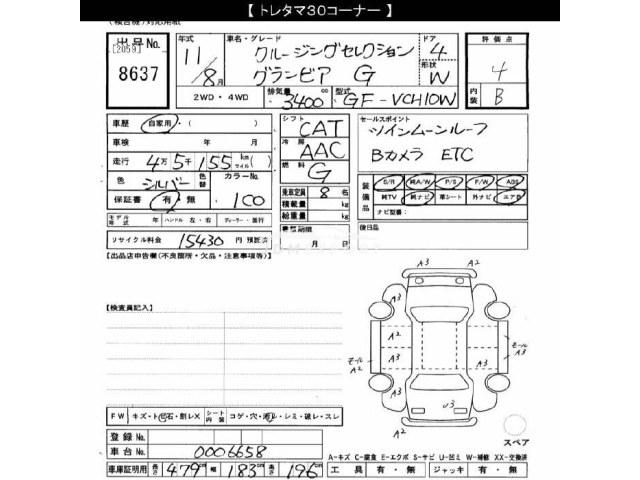 【 トレタマ30コーナー 】
(検合機)対応用紙
出品No. [2059] 8637
年式 11/8月
車名・グレード クルージングセレクション グランビア G
ドア 4
形状 W
評価点 4
内装 B
2WD・4WD
排気量 3400cc
型式 GF-VCH10W
車歴 自家用・( )
車検 年 月
走行 4万5千155 km(マイル)
色 シルバー 色替 カラーNo. 100
保証書 有・無
シフト CAT
冷房 AAC
燃料 G
乗車定員 8名
積載量 kg
総重量 kg
セールスポイント
ツインムーンルーフ
Bカメラ ETC
装備品 S/R 純A/W P/S P/W ABS
純TV 純ナビ 革シート 外ナビ エアB
ナビ型番:
モデル年式 年 ハンドル 左・右 ディーラー・並行
リサイクル料金 15430円 預託済
年 月 日
後日品
【出品店申告欄(不良箇所・欠品・注意事項等)】
【検査員記入】
A3 A2
A3 A3
A2 A2
モール A2 A3 モール A3
A3 A3
U3
スペア
FW キズ・ト石・割レX シート内装 コゲ・穴・汚レ・シミ・破レ・スレ
登録No.
車台No. 0006658
A-キズ C-腐食 E-エクボ S-サビ U-凹ミ W-補修 XX-交換済
車庫証明用 長さ 479cm 幅 183cm 高さ 196cm
工具 有・無 ジャッキ 有・無